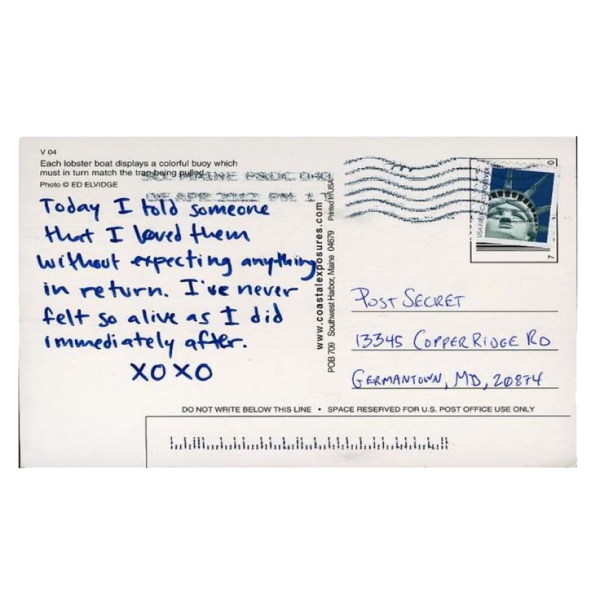 V 04
Each lobster boat displays a colorful buoy which
must in turn match the trap being pulled.
Photo © ED ELVIDGE
Today I told someone
that I loved them
without expecting anything
in return. I've never
felt so alive as I did
immediately after.
XOXO
www.coastalexposures.com
POB 709 Southwest Harbor, Maine 04679 Printed in USA
USA FIRST-CLASS FOREVER
0
7
POST SECRET
13345 COPPER RIDGE RD
GERMANTOWN, MD, 20874
DO NOT WRITE BELOW THIS LINE • SPACE RESERVED FOR U.S. POST OFFICE USE ONLY